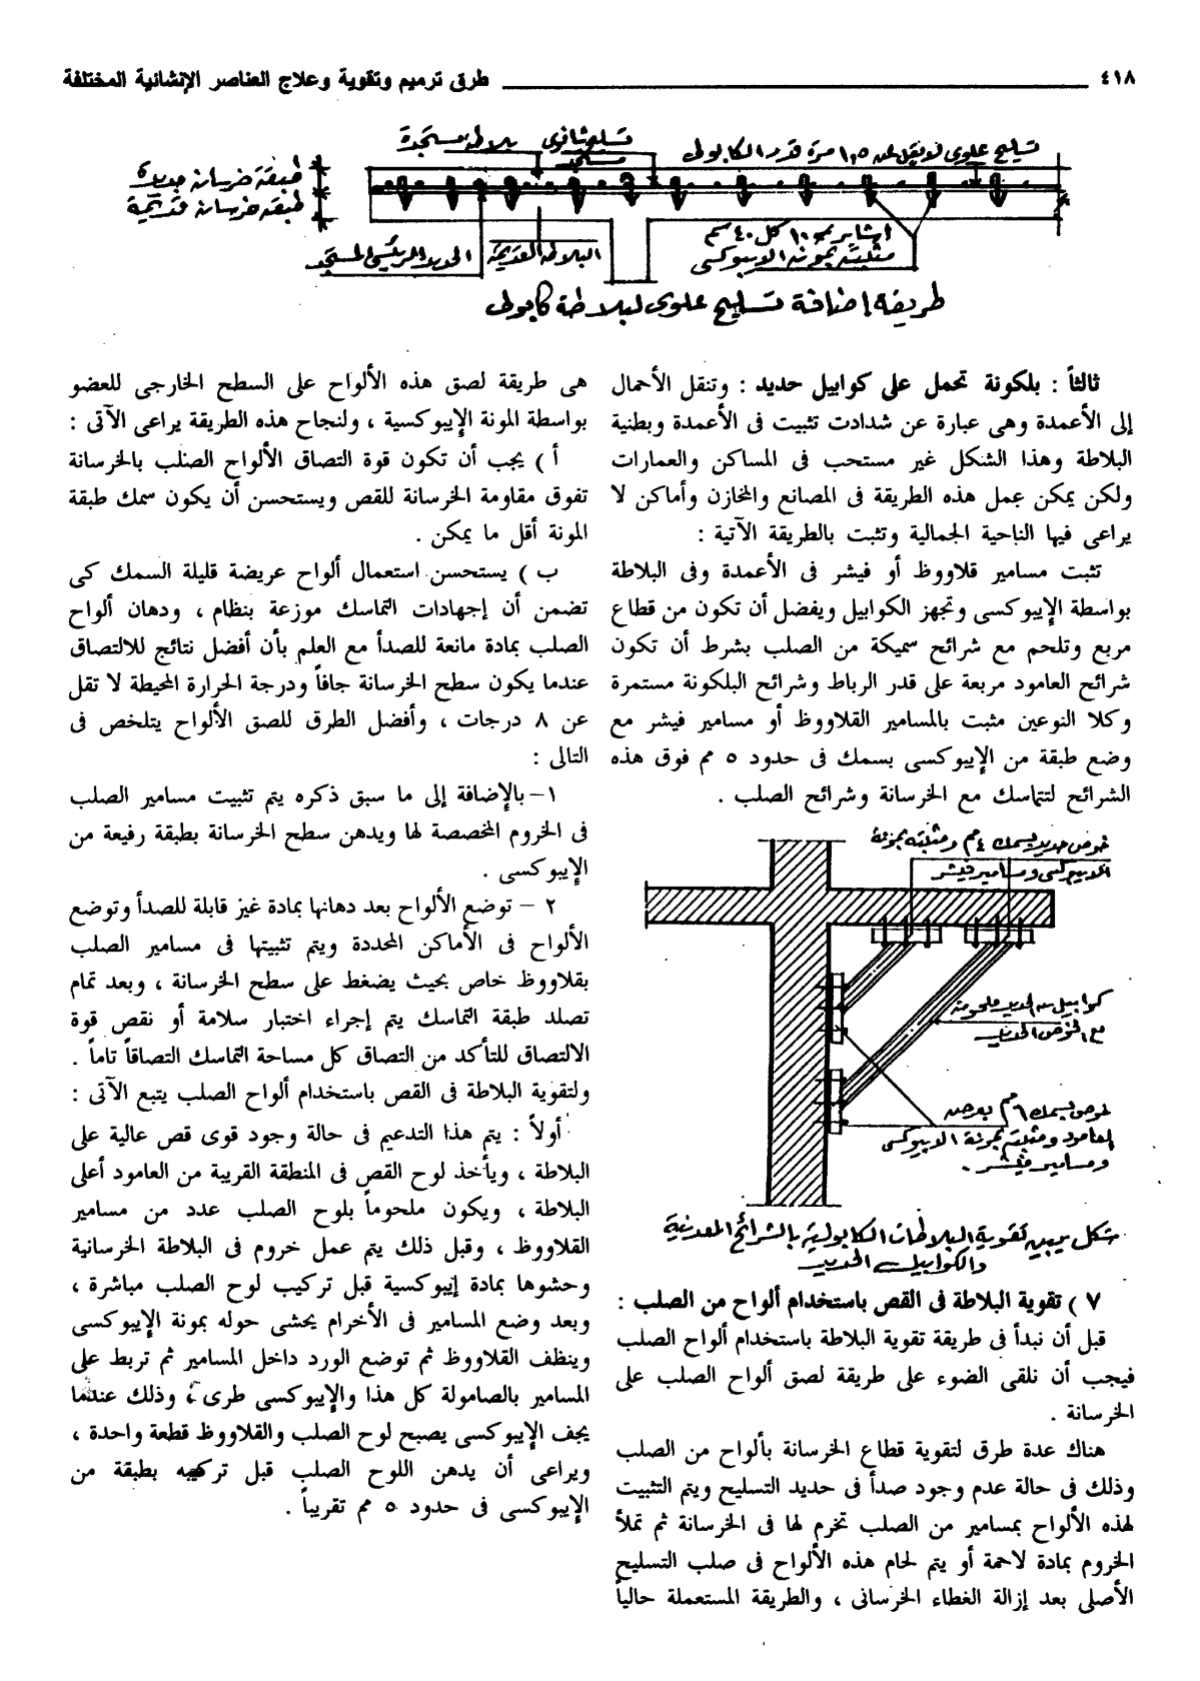 ٤١٨ طرق ترميم وتقوية وعلاج العناصر الإنشائية المختلفة
تسليح علوى لا يقل عن ١,٥ مرة قدر الكابولى
تسليح ثانوى
مستجد
بلاطة مستجدة
طبقة خرسانة جديدة
طبقة خرسانة قديمة
اشاير ١٠ كل ٤٠ سم
مثبتة بمونة الايبوكسى
البلاطة القديمة
الحديد الرئيسى المستجد
طريقة إضافة تسليح علوى لبلاطة كابولى
ثالثاً : بلكونة تحمل على كوابيل حديد : وتنقل الأحمال
إلى الأعمدة وهى عبارة عن شدادت تثبيت فى الأعمدة وبطنية
البلاطة وهذا الشكل غير مستحب فى المساكن والعمارات
ولكن يمكن عمل هذه الطريقة فى المصانع والمخازن وأماكن لا
يراعى فيها الناحية الجمالية وتثبت بالطريقة الآتية :
تثبت مسامير قلاووظ أو فيشر فى الأعمدة وفى البلاطة
بواسطة الإيبوكسى وتجهز الكوابيل ويفضل أن تكون من قطاع
مربع وتلحم مع شرائح سميكة من الصلب بشرط أن تكون
شرائح العامود مربعة على قدر الرباط وشرائح البلكونة مستمرة
وكلا النوعين مثبت بالمسامير القلاووظ أو مسامير فيشر مع
وضع طبقة من الإيبوكسى بسمك فى حدود ٥ مم فوق هذه
الشرائح لتتماسك مع الخرسانة وشرائح الصلب .
خوص حديد بسمك ٤ مم ومثبته بمونة
الايبوكسى ومسامير فيشر
كوابيل من الحديد ملحومة
مع الخوص الحديد
خوص بسمك ٦ مم بعرض
العامود ومثبتة بمونة الايبوكسى
ومسامير فيشر .
شكل يبين تقوية البلاطات الكابولية بالشرائح المعدنية
والكوابيل الحديد
٧ ) تقوية البلاطة فى القص باستخدام ألواح من الصلب :
قبل أن نبدأ فى طريقة تقوية البلاطة باستخدام ألواح الصلب
فيجب أن نلقى الضوء على طريقة لصق ألواح الصلب على
الخرسانة .
هناك عدة طرق لتقوية قطاع الخرسانة بألواح من الصلب
وذلك فى حالة عدم وجود صدأ فى حديد التسليح ويتم التثبيت
لهذه الألواح بمسامير من الصلب تخرم لها فى الخرسانة ثم تملأ
الخروم بمادة لاحمة أو يتم لحام هذه الألواح فى صلب التسليح
الأصلى بعد إزالة الغطاء الخرسانى ، والطريقة المستعملة حالياً
هى طريقة لصق هذه الألواح على السطح الخارجى للعضو
بواسطة المونة الإيبوكسية ، ولنجاح هذه الطريقة يراعى الآتى :
أ ) يجب أن تكون قوة التصاق الألواح الصلب بالخرسانة
تفوق مقاومة الخرسانة للقص ويستحسن أن يكون سمك طبقة
المونة أقل ما يمكن .
ب ) يستحسن استعمال ألواح عريضة قليلة السمك كى
تضمن أن إجهادات التماسك موزعة بنظام ، ودهان ألواح
الصلب بمادة مانعة للصدأ مع العلم بأن أفضل نتائج للالتصاق
عندما يكون سطح الخرسانة جافاً ودرجة الحرارة المحيطة لا تقل
عن ٨ درجات ، وأفضل الطرق للصق الألواح يتلخص فى
التالى :
١- بالإضافة إلى ما سبق ذكره يتم تثبيت مسامير الصلب
فى الخروم المخصصة لها ويدهن سطح الخرسانة بطبقة رفيعة من
الإيبوكسى .
٢ - توضع الألواح بعد دهانها بمادة غيز قابلة للصدأ وتوضع
الألواح فى الأماكن المحددة ويتم تثبيتها فى مسامير الصلب
بقلاووظ خاص بحيث يضغط على سطح الخرسانة ، وبعد تمام
تصلد طبقة التماسك يتم إجراء اختبار سلامة أو نقص قوة
الالتصاق للتأكد من التصاق كل مساحة التماسك التصاقاً تاماً .
ولتقوية البلاطة فى القص باستخدام ألواح الصلب يتبع الآتى :
أولاً : يتم هذا التدعيم فى حالة وجود قوى قص عالية على
البلاطة ، ويأخذ لوح القص فى المنطقة القريبة من العامود أعلى
البلاطة ، ويكون ملحوماً بلوح الصلب عدد من مسامير
القلاووظ ، وقبل ذلك يتم عمل خروم فى البلاطة الخرسانية
وحشوها بمادة إيبوكسية قبل تركيب لوح الصلب مباشرة ،
وبعد وضع المسامير فى الأخرام يحشى حوله بمونة الإيبوكسى
وينظف القلاووظ ثم توضع الورد داخل المسامير ثم تربط على
المسامير بالصامولة كل هذا والإيبوكسى طرى ، وذلك عندما
يجف الإيبوكسى يصبح لوح الصلب والقلاووظ قطعة واحدة ،
ويراعى أن يدهن اللوح الصلب قبل تركيبه بطبقة من
الإيبوكسى فى حدود ٥ مم تقريباً .